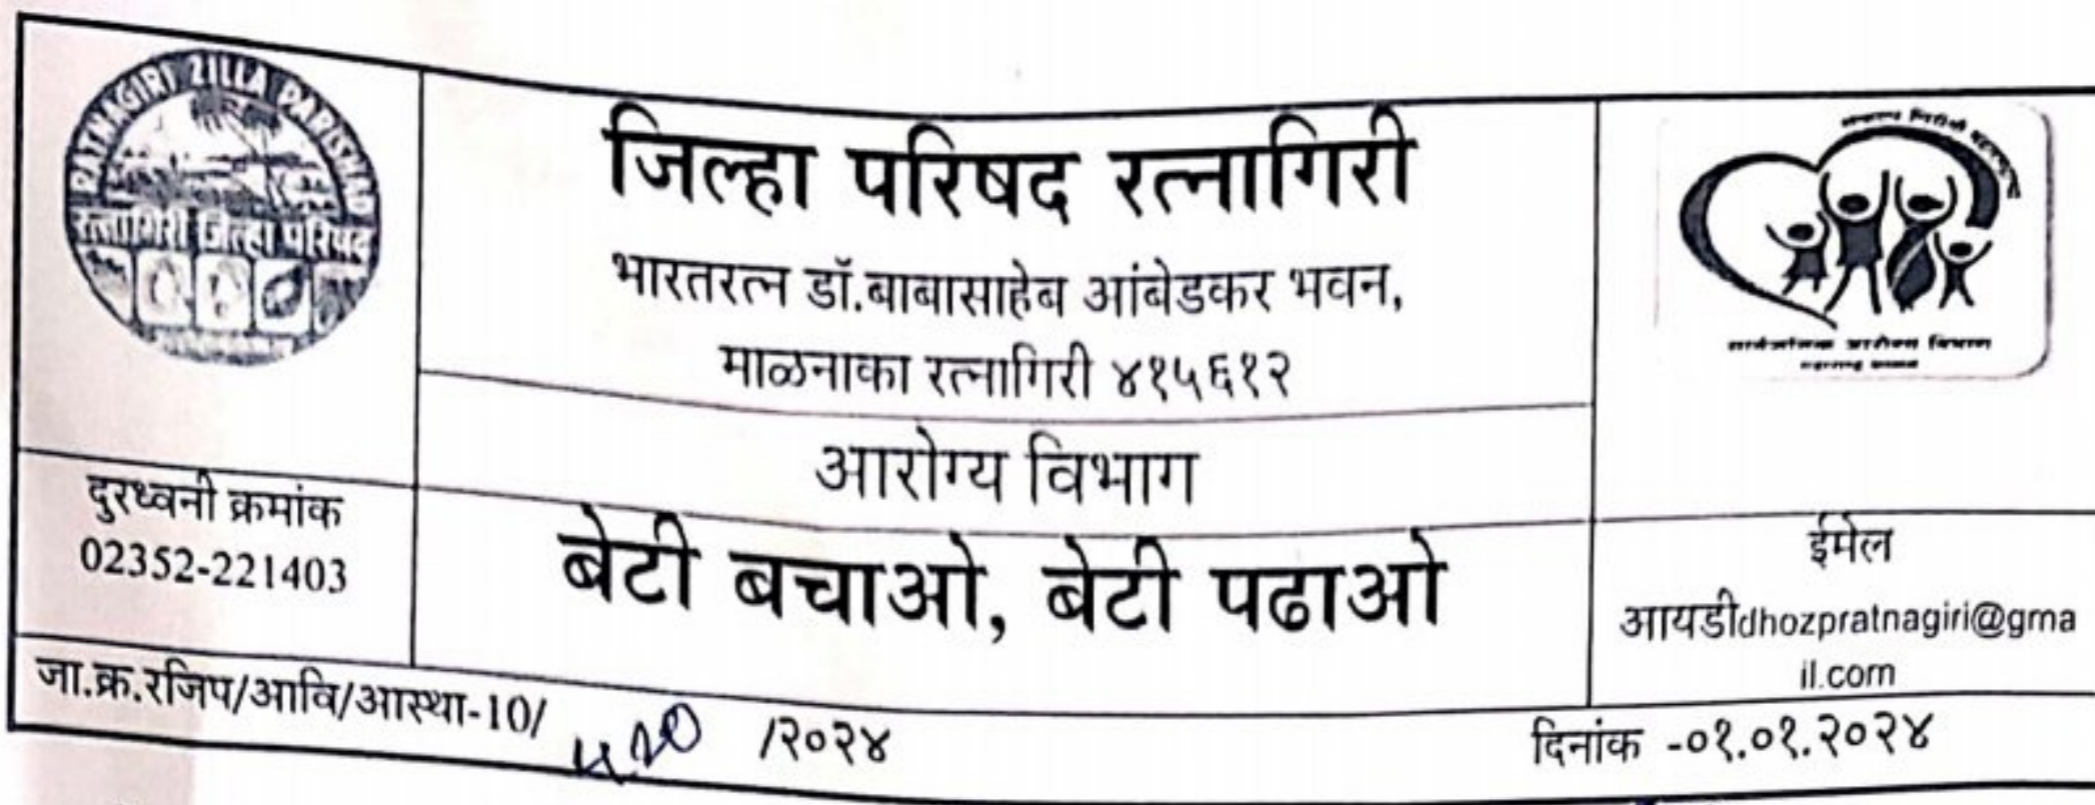 RATNAGIRI ZILLA PARISHAD
रत्नागिरी जिल्हा परिषद
जिल्हा परिषद रत्नागिरी
भारतरत्न डॉ.बाबासाहेब आंबेडकर भवन,
माळनाका रत्नागिरी ४१५६१२
सार्वजनिक आरोग्य विभाग
आरोग्य विभाग
दुरध्वनी क्रमांक
02352-221403
बेटी बचाओ, बेटी पढाओ
ईमेल
आयडीdhozpratnagiri@gma
il.com
जा.क्र.रजिप/आवि/आस्था-10/ /२०२४
दिनांक -०१.०१.२०२४